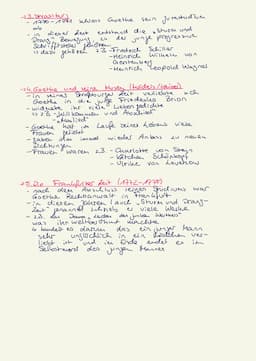 - 1770 - 1771 schloss Goethe sein Jurastudium
ab
- in dieser Zeit entstand die "Sturm und
Drang" Bewegung, in der junge progressive
Schriftsteller gehörten
→ dazu gehören z.B. - Friedrich Schiller
- Heinrich Wilhelm von
Gerstenberg
- Heinrich Leopold Wagner
Goethe und seine Musen
- in seiner Straßburger Zeit verliebte sich
Goethe in die junge Friederike Brion
- widmete ihr viele Liebesgedichte
→ z.B. "Willkommen und Abschied"
"Mailied"
- Goethe hat im Laufe seines Lebens viele
Frauen geliebt
- gaben ihm immer wieder Anlass zu neuen
Dichtungen
- Frauen waren z.B. - Charlotte von Stein
- Käthchen Schönkopf
- Ulrike von Levetzow
Die Frankfurter Zeit (1772-1775)
- nach dem Abschluss seines Studiums war
Goethe Rechtsanwalt in Frankfurt
- in diesen Jahren (auch "Sturm und Drang"-
Zeit genannt) schrieb er viele Werke
- z.B. "Die Leiden des jungen Werthers"
was ihn weltberühmt machte
→ handelt es darum das ein junger Mann
sehr unglücklich in ein Mädchen ver-
liebt ist und im Ende endet es im
Selbstmord des jungen Mannes